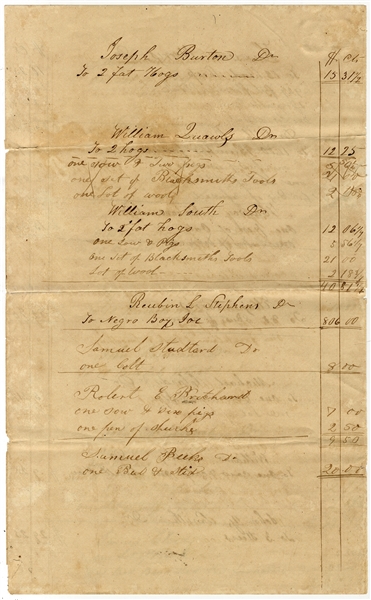 Joseph Burton Dr $ Cts
To 2 fat Hogs 15 31½
William Quarls Dr
To 2 hogs 12 75
one sow &
one set of Blacksmiths Tools 21
one Lot of wool 2
William South Dr
To 2 fat hogs 12 06¼
one Sow & Pigs 5 56¼
one Set of Blacksmiths Tools 21 00
Lot of Wool 2 18¾
40 81¼
Reubin L Stephens Dr
To Negro Boy Joe 806 00
Samuel Studtard Dr
one Colt 8 00
Robert E
one sow & six pigs 7 00
one pen of 2 50
9 50
Samuel Beeks Dr
one Bed & 20 00